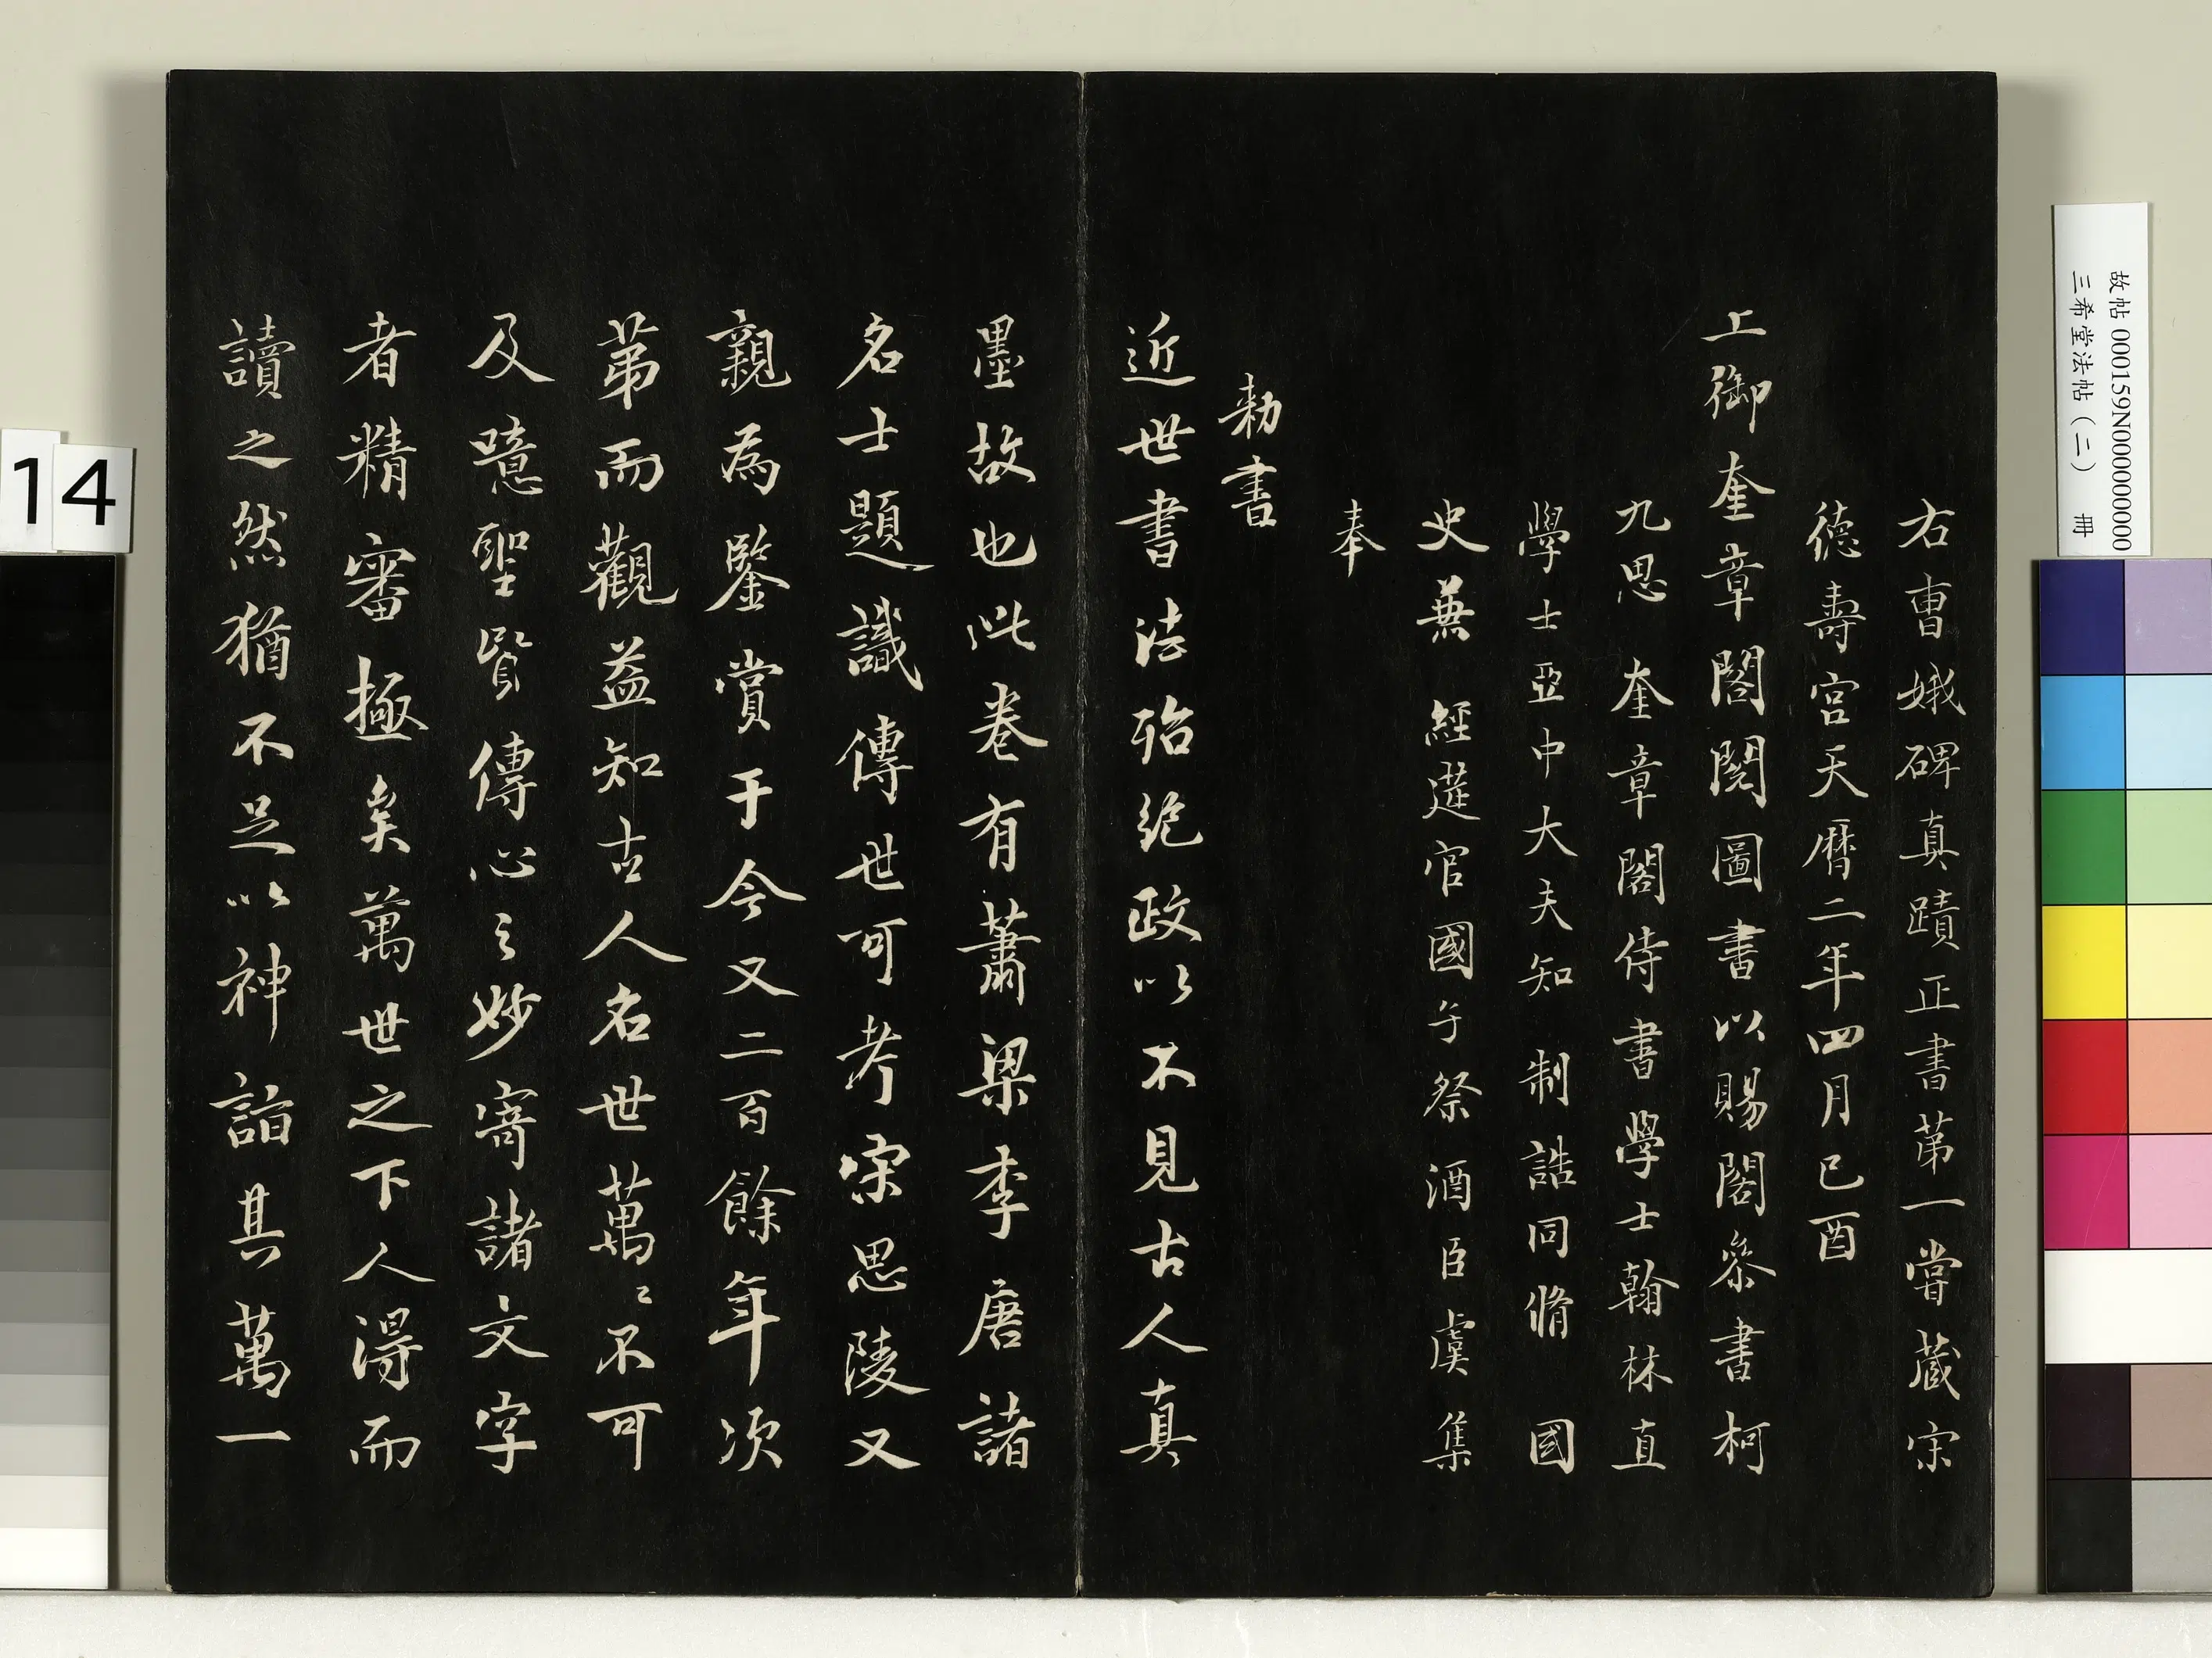 右曹娥碑真蹟正書第一嘗蔵宋
德壽宮天曆二年四月己酉
上御奎章閣閱圖書以賜閣叅書柯
九思 奎章閣侍書學士翰林直
學士亞中大夫知 制誥同脩 國
史兼 經筵官國子祭酒臣虞集
奉
勑書
近世書法殆絶政以不見古人真
墨故也此卷有蕭梁李唐諸
名士題識傳世可考宋思陵又
親為鑒賞于今又二百餘年次
苐而觀益知古人名世萬〻不可
及噫聖賢傳心之妙寄諸文字
者精審極矣萬世之下人得而
讀之然猶不足以神詣其萬一
故帖 000159N000000000
三希堂法帖（二） 冊
14